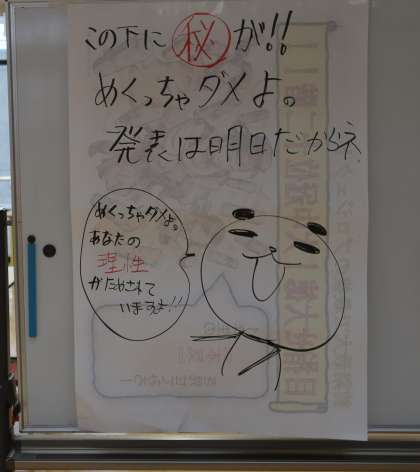 この下に㊙が!!
めくっちゃダメよ。
発表は明日だからネ
めくっちゃダメよ。
あなたの
理性
がためされて
いますよ!!!